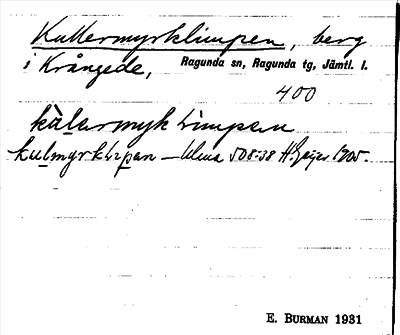 Kullermyrklimpen, berg
i Krångede, Ragunda sn, Ragunda tg, Jämtl. l.
400
kàlarmyk limpan
kulmyrk - Ulma 508:38 H. Geijer 1905.
E. BURMAN 1931